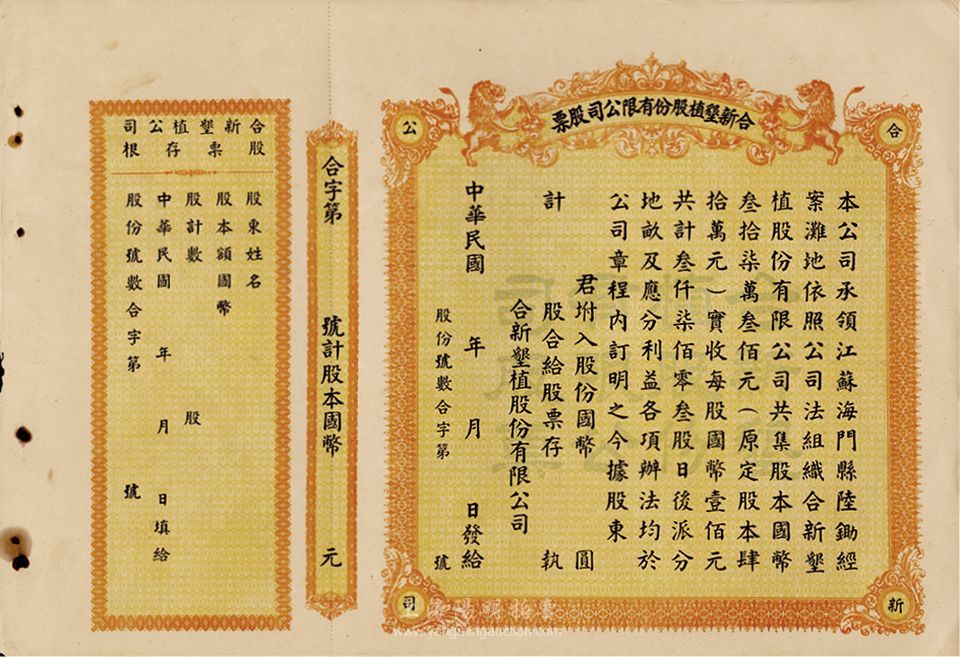 合新墾植股份有限公司股票
合
新
公
司
本公司承領江蘇海門縣陸鋤經
案灘地依照公司法組織合新墾
植股份有限公司共集股本國幣
叁拾柒萬叁佰元（原定股本肆
拾萬元）實收每股國幣壹佰元
共計叁仟柒佰零叁股日後派分
地畝及應分利益各項辦法均於
公司章程內訂明之今據股東
君坿入股份國幣 圓
計 股合給股票存 執
合新墾植股份有限公司
中華民國 年 月 日發給
股份號數合字第 號
合字第 號計股本國幣 元
合新墾植公司
股票存根
股東姓名
股本額國幣
股計數 股
中華民國 年 月 日填給
股份號數合字第 號
www.yangmingauction.com